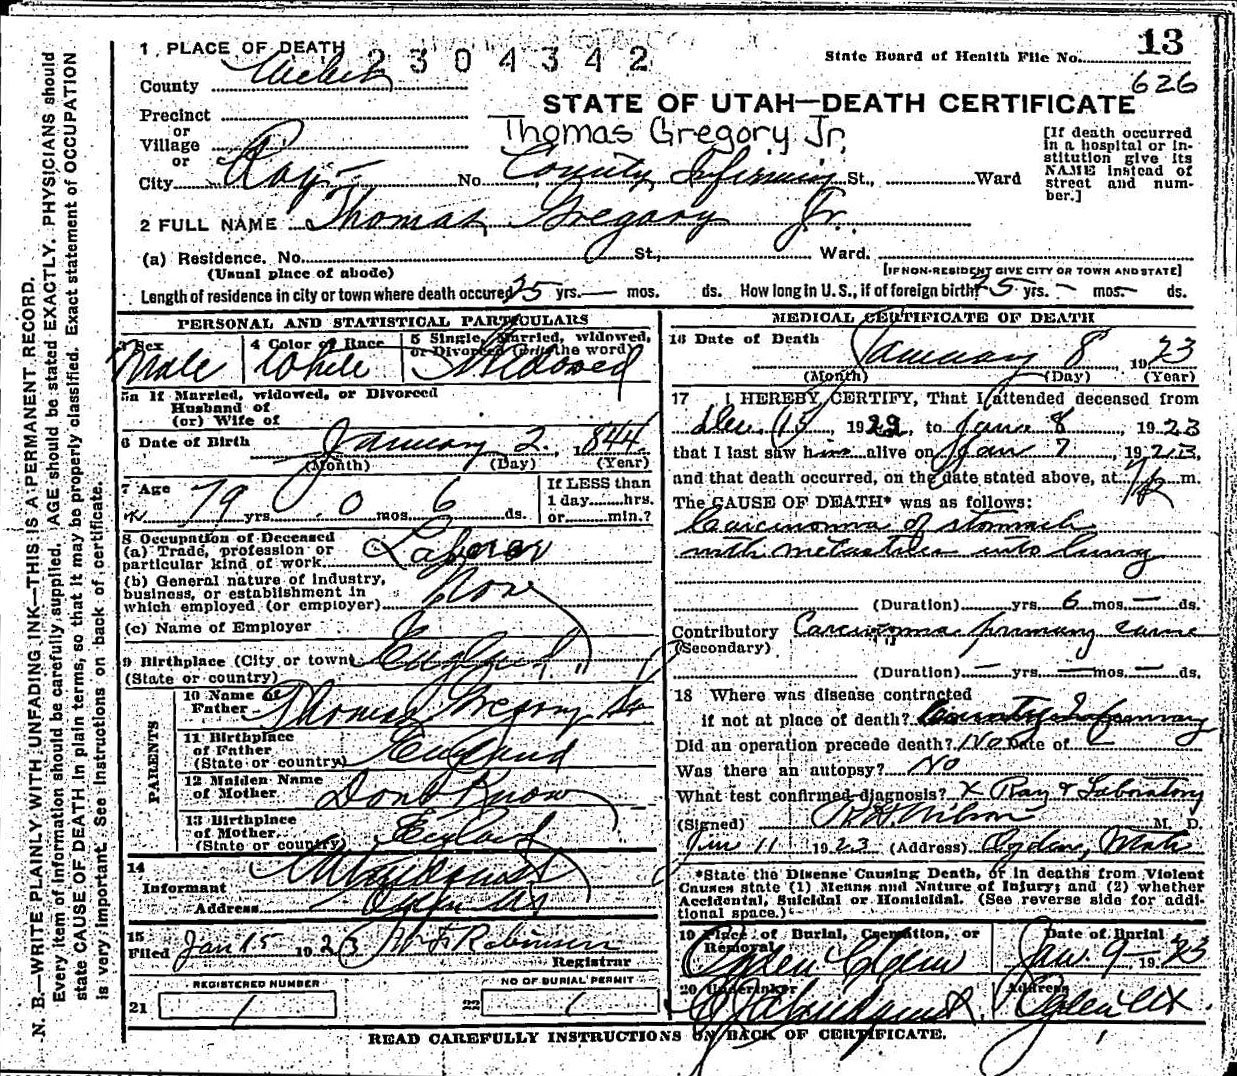 1 PLACE OF DEATH 2304342 State Board of Health File No. 13
County Weber 626
STATE OF UTAH—DEATH CERTIFICATE
Precinct
or
Village
or
City Roy No. County Infirmary St., Ward
Thomas Gregory Jr.
[If death occurred in a hospital or institution give its NAME instead of street and number.]
2 FULL NAME Thomas Gregory Jr.
(a) Residence. No. St., Ward.
(Usual place of abode) [IF NON-RESIDENT GIVE CITY OR TOWN AND STATE]
Length of residence in city or town where death occured 25 yrs. — mos. ds. How long in U.S., if of foreign birth? 25 yrs. — mos. — ds.
PERSONAL AND STATISTICAL PARTICULARS
3 Sex Male
4 Color or Race White
5 Single, Married, widowed, or Divorced (write the word) Widowed
5a If Married, widowed, or Divorced
Husband of
(or) Wife of
6 Date of Birth January 2, 1844
(Month) (Day) (Year)
7 Age 79 yrs. 0 mos. 6 ds.
If LESS than
1 day hrs.
or min.?
8 Occupation of Deceased
(a) Trade, profession or
particular kind of work Laborer
(b) General nature of industry,
business, or establishment in
which employed (or employer) None
(c) Name of Employer
9 Birthplace (City or town) England
(State or country)
PARENTS
10 Name of
Father Thomas Gregory Sr
11 Birthplace
of Father England
(State or country)
12 Maiden Name
of Mother Dont Know
13 Birthplace
of Mother England
(State or country)
14
Informant
Address Ogden
15
Filed Jan 15 1923 Robinson
Registrar
REGISTERED NUMBER
21 1
NO OF BURIAL PERMIT
22 1
MEDICAL CERTIFICATE OF DEATH
16 Date of Death January 8 1923
(Month) (Day) (Year)
17 I HEREBY CERTIFY, That I attended deceased from
Dec. 15, 1922, to Jan. 8, 1923
that I last saw him alive on Jan 7, 1923,
and that death occurred, on the date stated above, at m.
The CAUSE OF DEATH* was as follows:
Carcinoma of stomach
with metastases into lung
(Duration) yrs. 6 mos. — ds.
Contributory Carcinoma primary cause
(Secondary)
(Duration) — yrs. — mos. — ds.
18 Where was disease contracted
if not at place of death? County Infirmary
Did an operation precede death? No Date of
Was there an autopsy? No
What test confirmed diagnosis? X Ray & Laboratory
(Signed) Wilson M. D.
Jan 11 1923 (Address) Ogden, Utah
*State the Disease Causing Death, or in deaths from Violent
Causes state (1) Means and Nature of Injury; and (2) whether
Accidental, Suicidal or Homicidal. (See reverse side for addi-
tional space.)
19 Place of Burial, Cremation, or
Removal
Ogden
Date of Burial
Jan. 9 1923
20 Undertaker
Address
Ogden
READ CAREFULLY INSTRUCTIONS ON BACK OF CERTIFICATE.
N. B.—WRITE PLAINLY WITH UNFADING INK—THIS IS A PERMANENT RECORD.
Every item of information should be carefully supplied. AGE should be stated EXACTLY. PHYSICIANS should
state CAUSE OF DEATH in plain terms, so that it may be properly classified. Exact statement of OCCUPATION
is very important. See instructions on back of certificate.